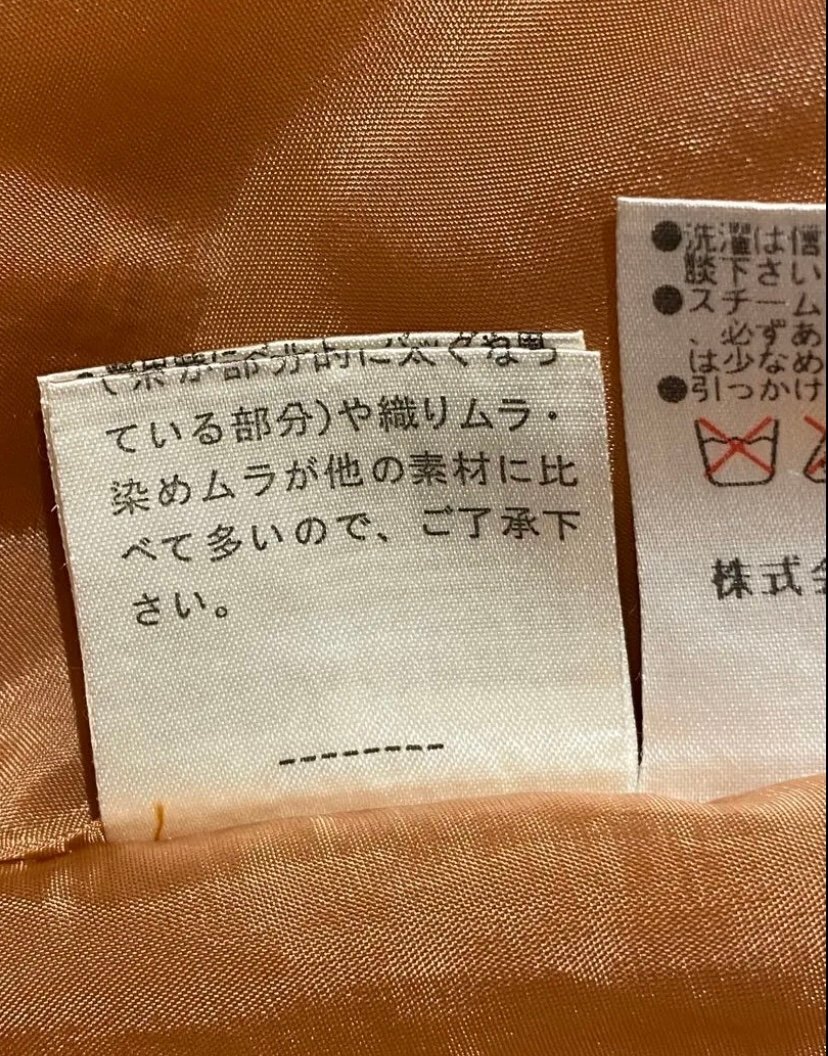 (糸が部分的に太くなっ
ている部分)や織りムラ・
染めムラが他の素材に比
べて多いので、ご了承下
さい。
●洗濯は
談下さい
●スチーム
、必ずあ
は少なめ
●引っかけ
株式会